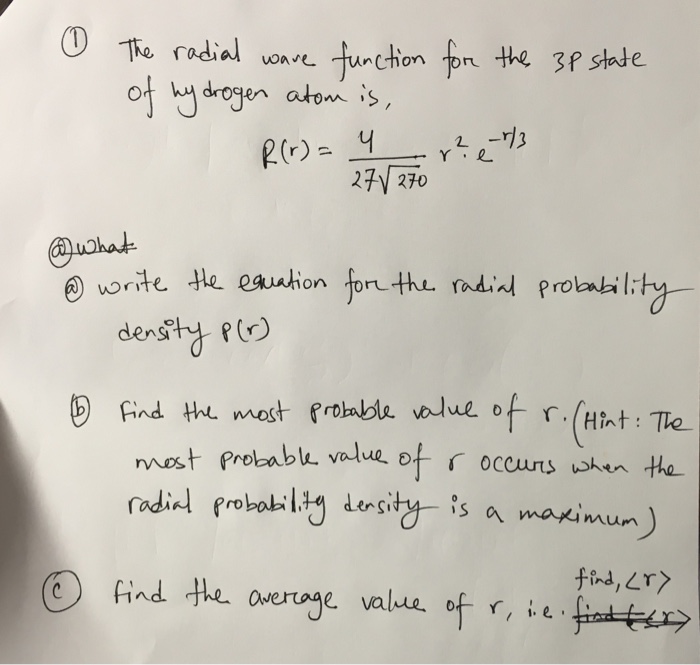 ① The radial wave function for the 3P state
of hydrogen atom is,
R(r) = 4 / 27√270 r² e^-r/3
ⓐ what
ⓐ write the equation for the radial probability
density P(r)
ⓑ Find the most probable value of r. (Hint: The
most probable value of r occurs when the
radial probability density is a maximum)
find, <r>
ⓒ find the average value of r, i.e.